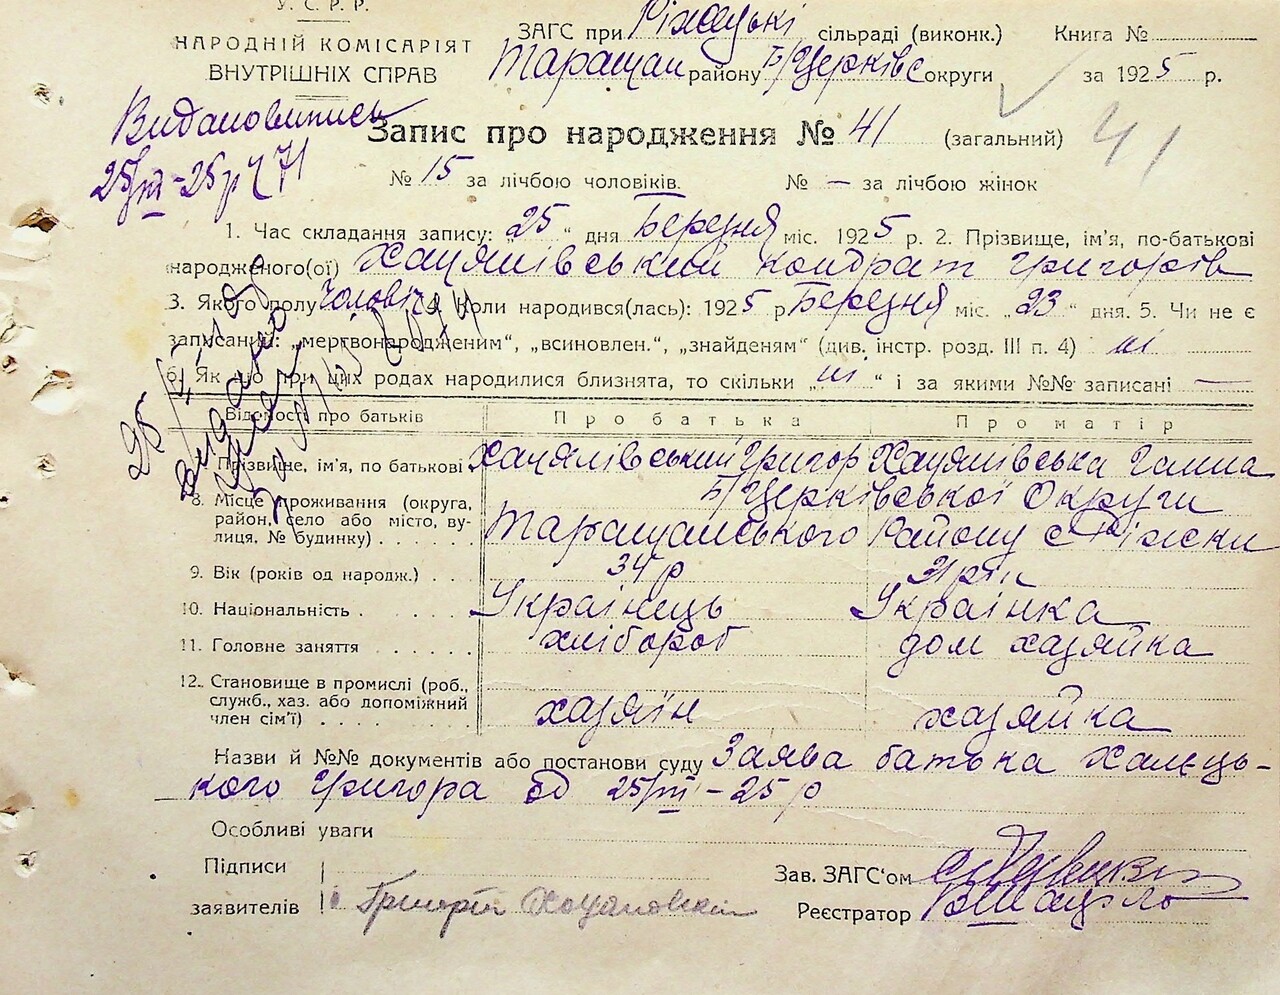 У. С. Р. Р.
НАРОДНІЙ КОМІСАРІЯТ
ВНУТРІШНІХ СПРАВ
ЗАГС при сільраді (виконк.) Книга №
Таращан району Б/Церківс округи за 1925 р.
Запис про народження № 41 (загальний) 41
25/III-25 р
№ 15 за лічбою чоловіків. № — за лічбою жінок
1. Час складання запису: „25“ дня Березня міс. 1925 р. 2. Прізвище, ім'я, по-батькові
народженого(ої) Хацяпівський Кондрат Григорів
3. Якого полу Чоловіч 4. Коли народився(лась): 1925 р Березня міс. „23“ дня. 5. Чи не є
записаний: „мертвонародженим“, „всиновлен.“, „знайденям“ (див. інстр. розд. III п. 4) ні
6. Як що при цих родах народилися близнята, то скільки „ні“ і за якими №№ записані —
Відомості про батьків Про батька Про матір
7. Прізвище, ім'я, по батькові Григор Галина
8. Місце проживання (округа, район, село або місто, вулиця, № будинку) Б/Церківської Округи
Таращанського Району с Ріжки
9. Вік (років од народж.) 34 р
10. Національність Українець Українка
11. Головне заняття хлібороб дом хазяйка
12. Становище в промислі (роб.,
служб., хаз. або допоміжний
член сім'ї) хазяїн хазяйка
Назви й №№ документів або постанови суду Заява батька
кого Григора від 25/III-25 р
Особливі уваги
Підписи
Зав. ЗАГС'ом
заявителів Григорій
Реєстратор